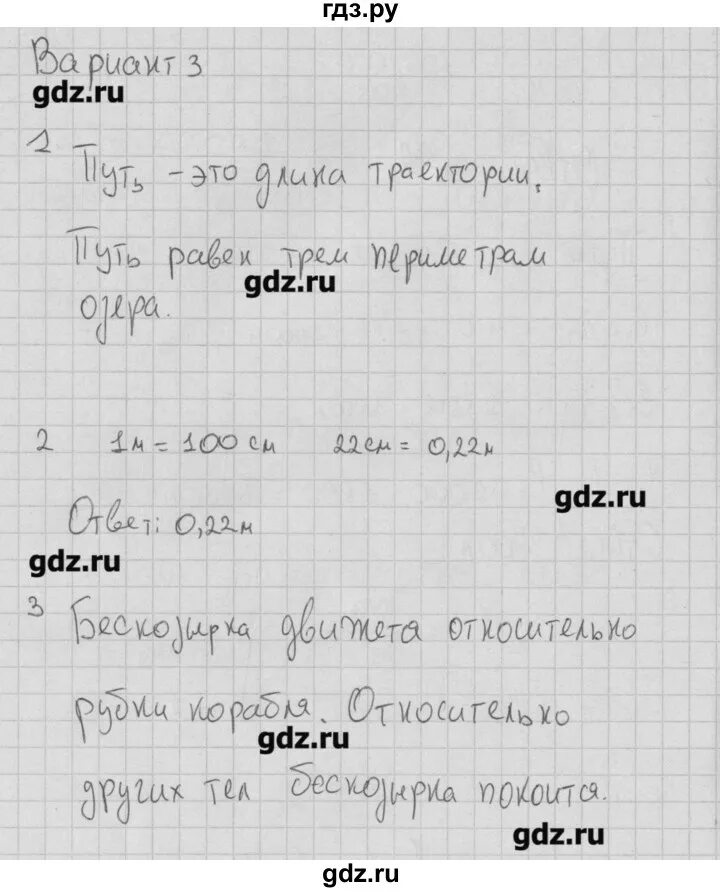 гдз.ру
Вариант 3
gdz.ru
1 Путь - это длина траектории.
Путь равен трем периметрам
gdz.ru
озера.
2 1м = 100 см 22см = 0,22м
gdz.ru
Ответ: 0,22м
gdz.ru
3 Бескозырка движета относительно
рубки корабля. Относительно
gdz.ru
других тел бескозырка покоится.
gdz.ru
gdz.ru